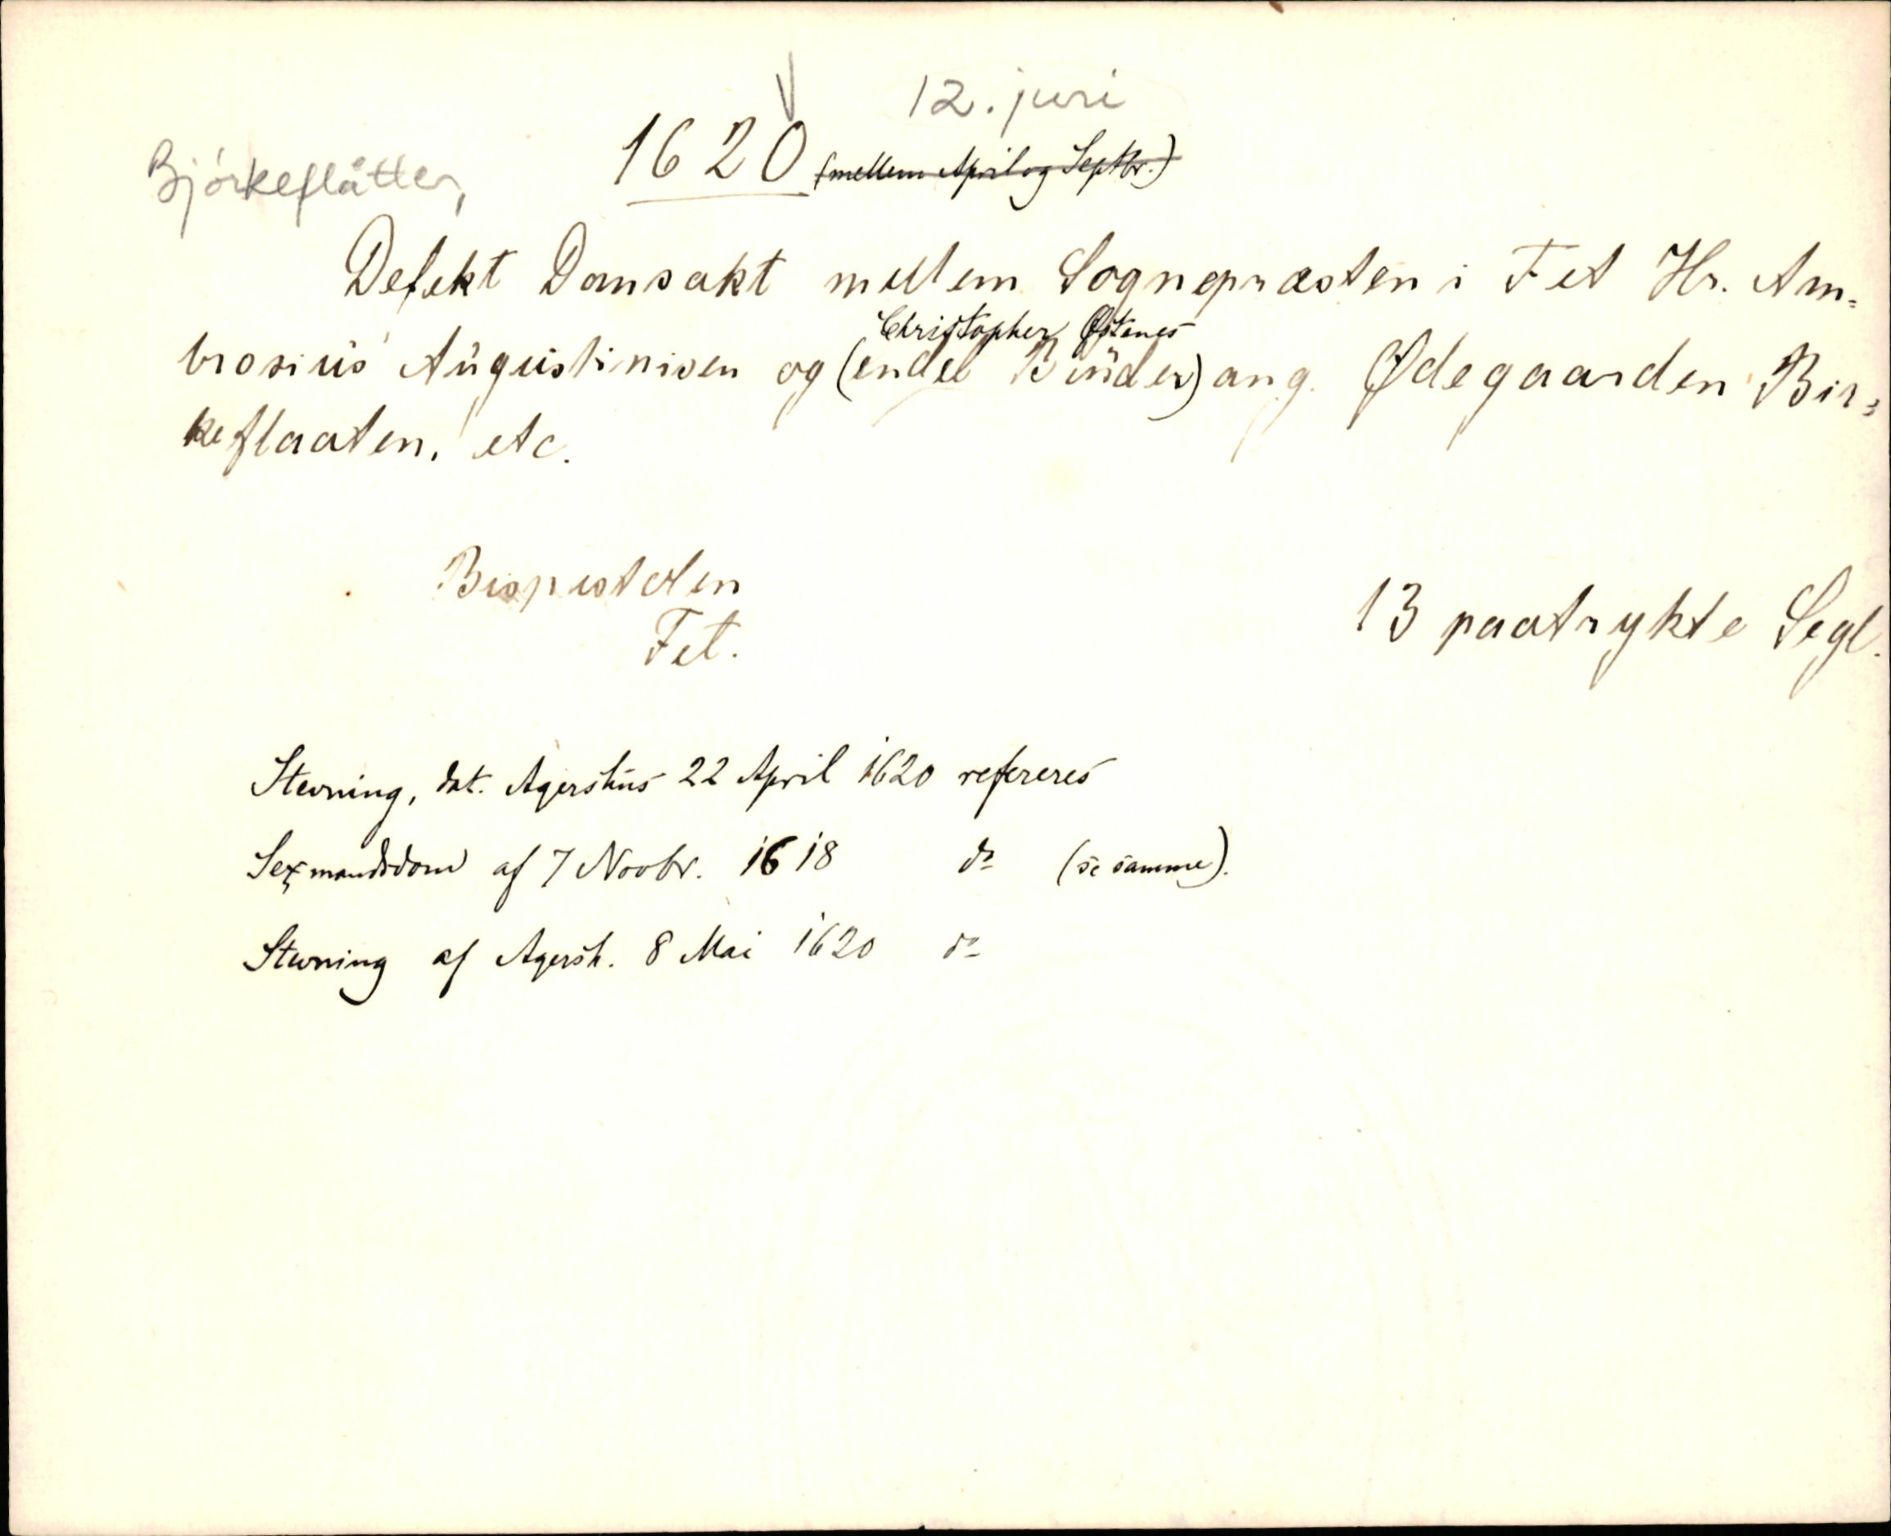 12. juni
Björkeflåtten,
1620 (mellem April og Septbr.)
Defekt Domsakt mellem Sognepræsten i Fet Hr. Am=
Christopher Østenes
brosius Augustinisen og (endel Bönder) ang. Ødegaarden Bir=
keflaaten, etc.
Bispestolen
Fet.
13 paatrykte Segl.
Stevning, dat. Agershus 22 April 1620 refereres
Sexmandsdom af 7 Novbr. 1618 do (se samme).
Stevning af Agersh. 8 Mai 1620 do